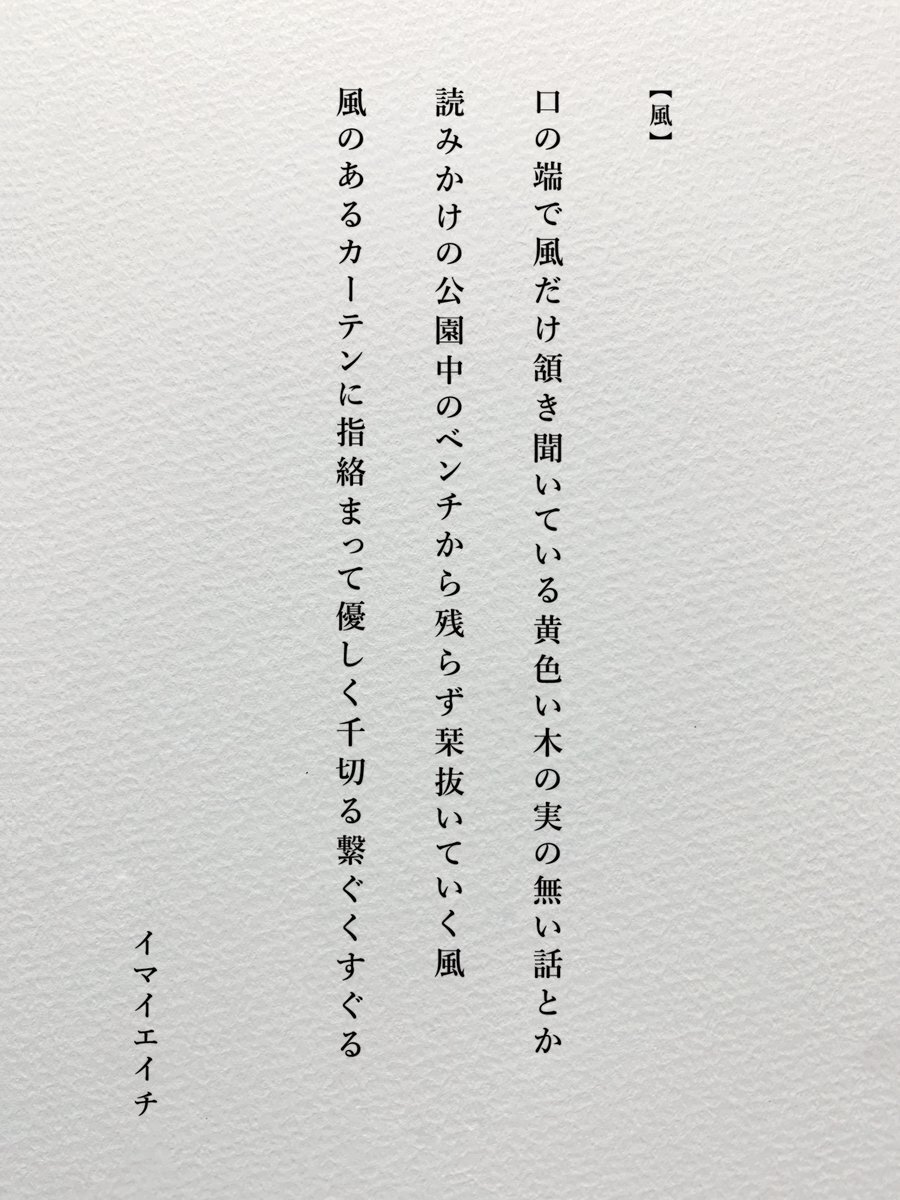 【風】
口の端で風だけ頷き聞いている黄色い木の実の無い話とか
読みかけの公園中のベンチから残らず栞抜いていく風
風のあるカーテンに指絡まって優しく千切る繋ぐくすぐる
イマイエイチ